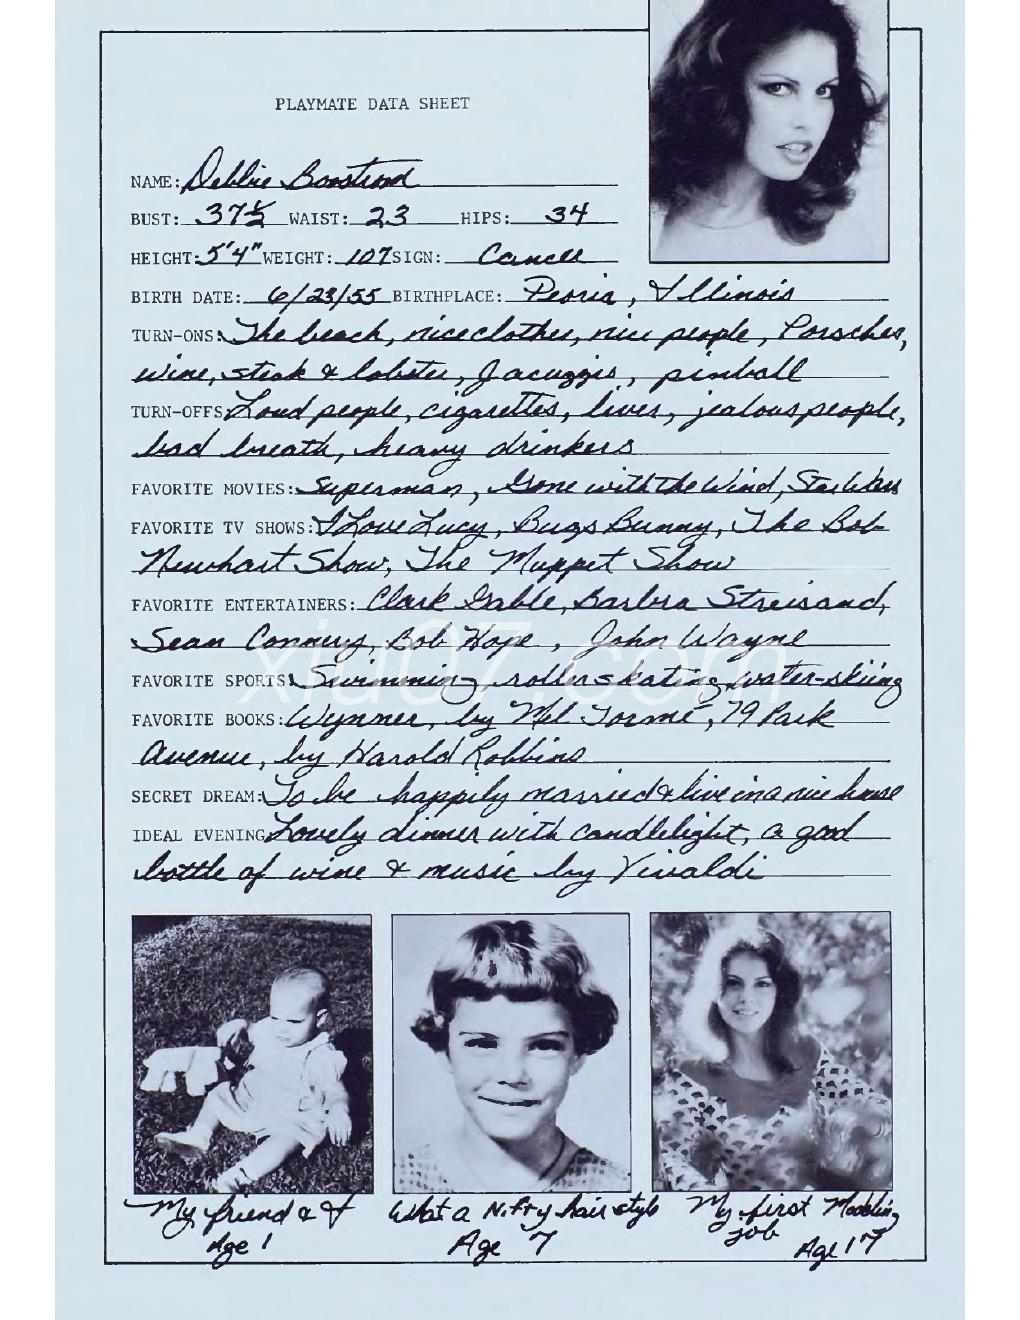 PLAYMATE DATA SHEET
NAME: Debbie Boostrom
BUST: 37½ WAIST: 23 HIPS: 34
HEIGHT: 5'4" WEIGHT: 107 SIGN: Cancer
BIRTH DATE: 6/23/55 BIRTHPLACE: Peoria, Illinois
TURN-ONS: The beach, nice clothes, nice people, Porsches,
wine, steak & lobster, Jacuzzis, pinball
TURN-OFFS: Loud people, cigarettes, liver, jealous people,
bad breath, heavy drinkers
FAVORITE MOVIES: Superman, Gone with the Wind, Star Wars
FAVORITE TV SHOWS: I Love Lucy, Bugs Bunny, The Bob
Newhart Show, The Muppet Show
FAVORITE ENTERTAINERS: Clark Gable, Barbra Streisand,
Sean Connery, Bob Hope, John Wayne
xiu07.com
FAVORITE SPORTS: Swimming, roller skating, water-skiing
FAVORITE BOOKS: Wynner, by Mel Tormé, 79 Park
Avenue, by Harold Robbins
SECRET DREAM: To be happily married & live in a nice house
IDEAL EVENING: Lovely dinner with candlelight, a good
bottle of wine & music by Vivaldi
My friend & I
Age 1
What a Nifty hair style
Age 7
My first Modeling
job
Age 17